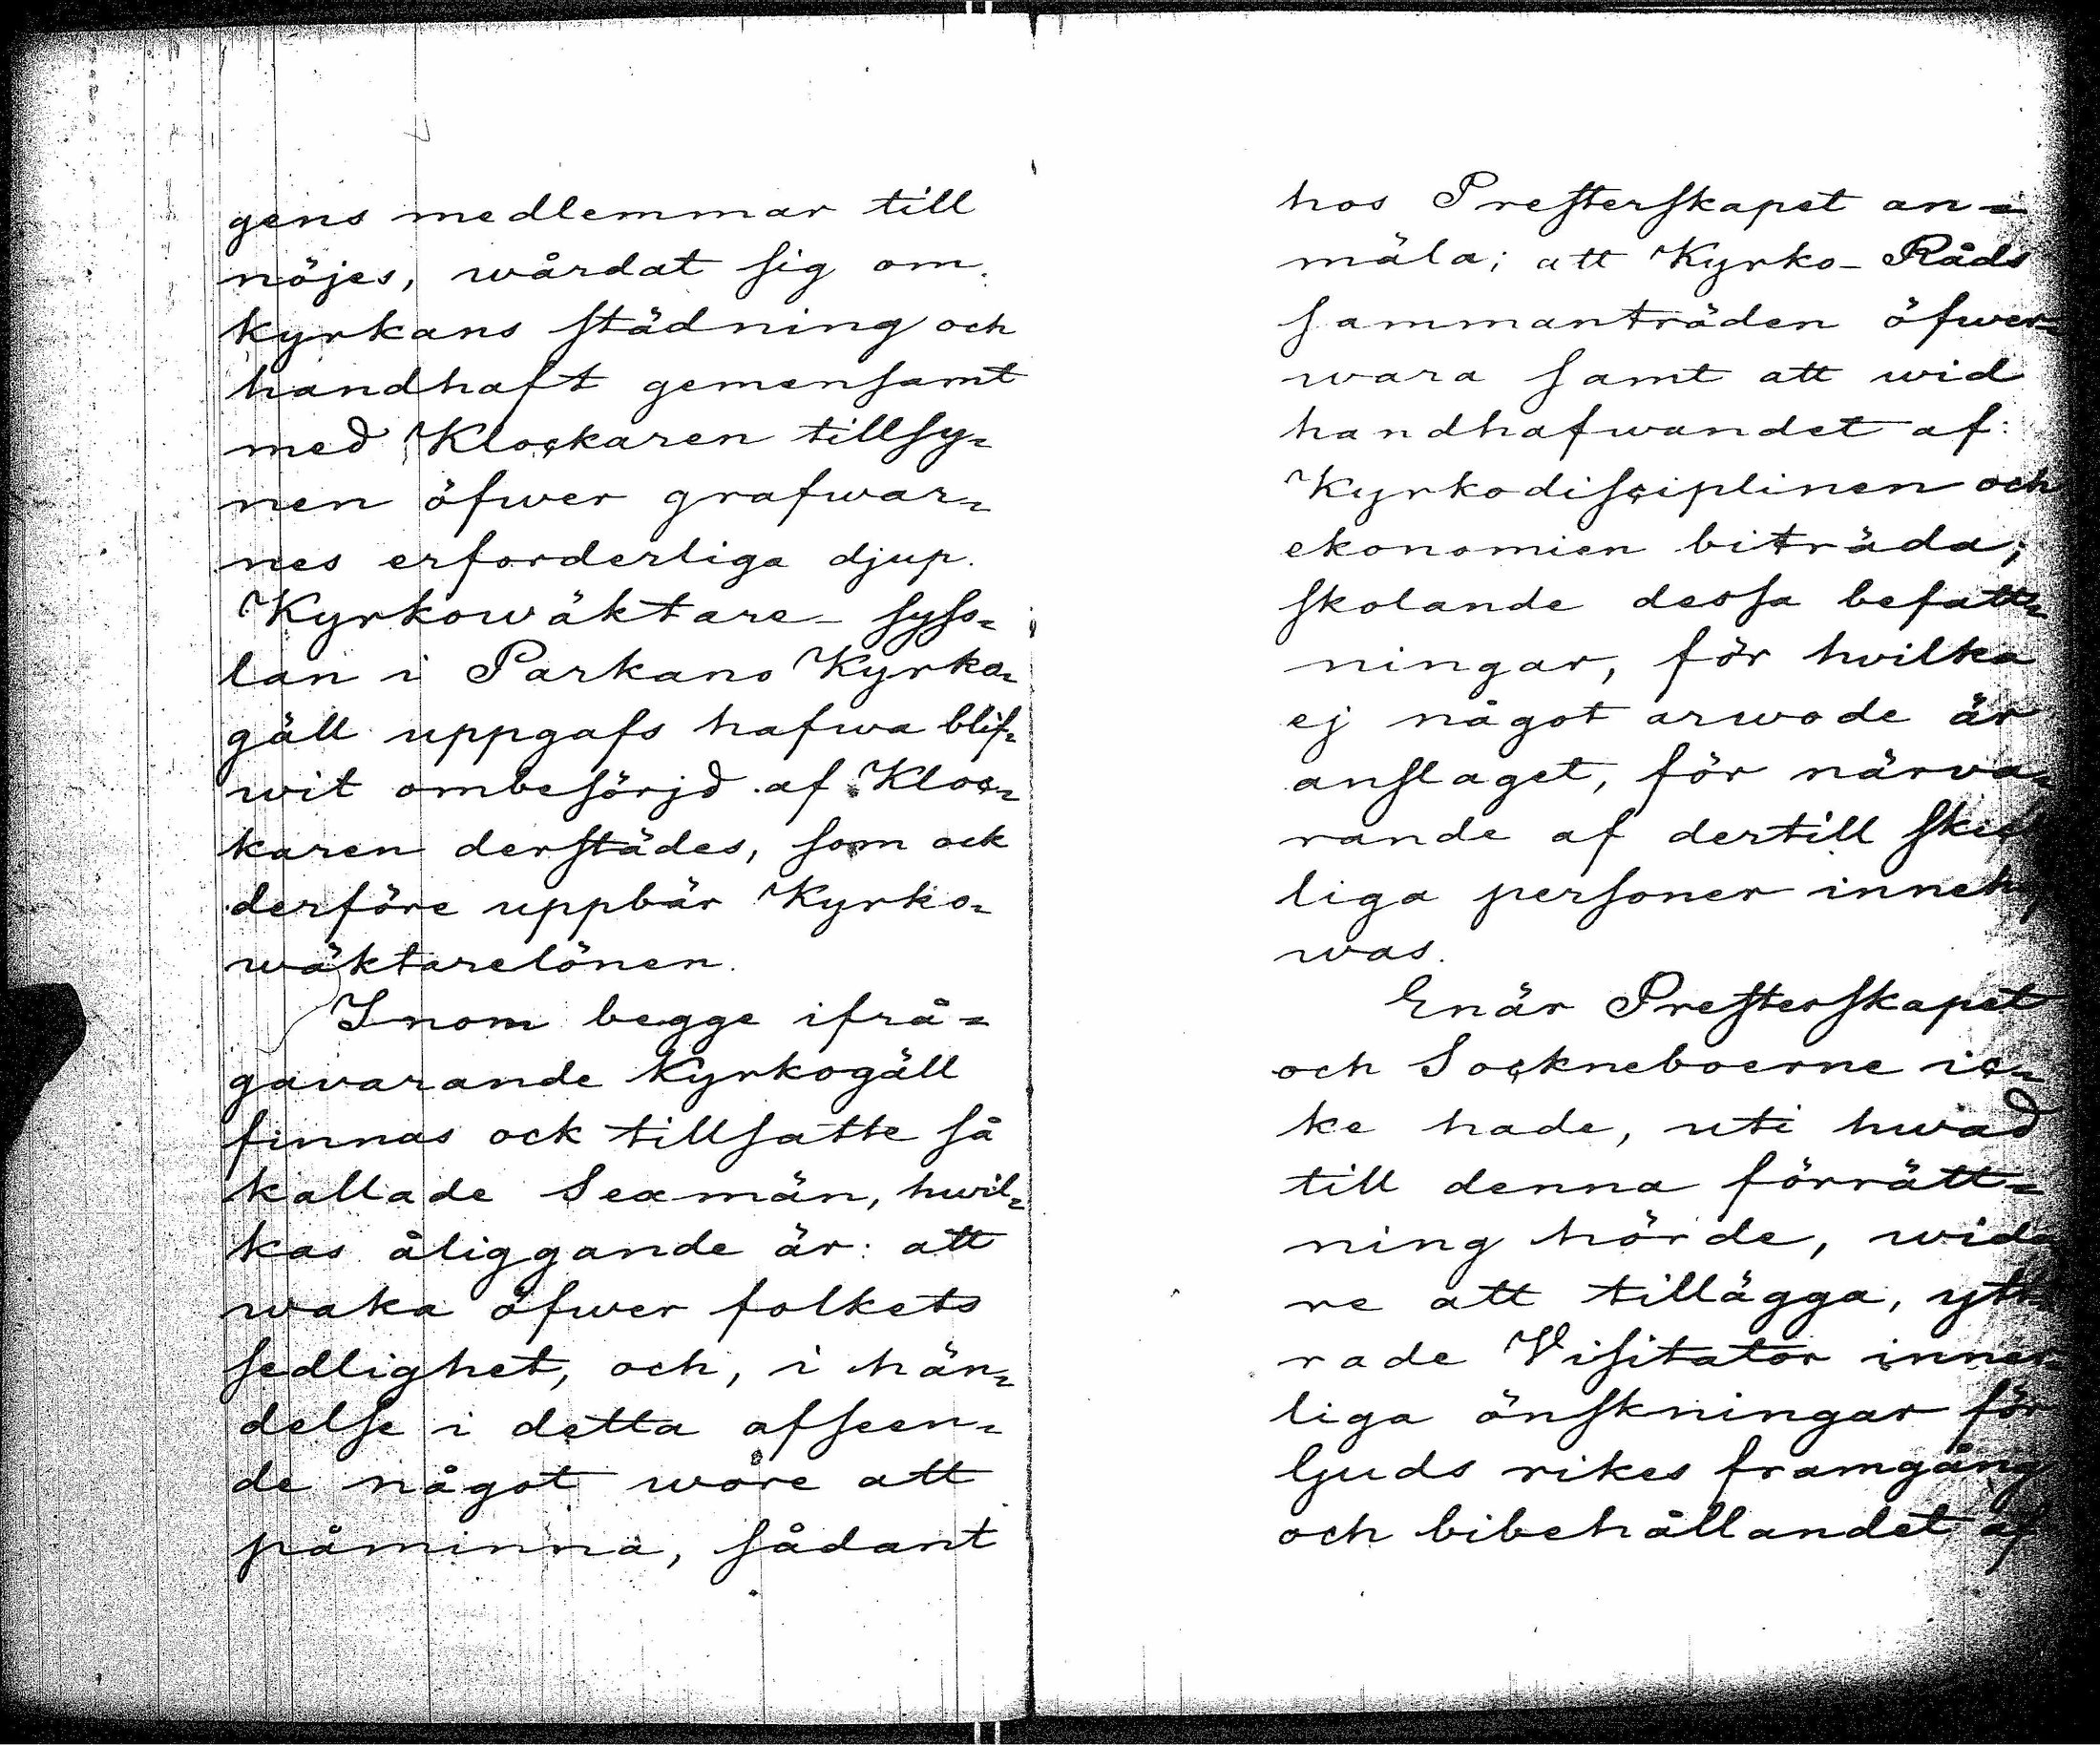 gens medlemmar till
nöjes, wårdat sig om
kyrkans städning och
handhaft gemensamt
med Klockaren tillsy=
nen öfwer grafwar=
nes erforderliga djup.
Kyrkowäktare- syss=
lan i Parkano Kyrko=
gäll uppgafs hafwa blif=
wit ombesörjd af Kloc=
karen derstädes, som ock
derföre uppbär Kyrko=
wäktarelönen.
Inom begge ifrå=
gavarande Kyrkogäll
finnas ock tillsatte så
kallade Sexmän, hwil=
kas åliggande är: att
waka öfwer folkets
sedlighet, och, i hän=
delse i detta afseen=
de något wore att
påminna, sådant
hos Presterskapet an=
mäla; att Kyrko-Råds
sammanträden öfwer=
wara samt att wid
handhafwandet af
Kyrkodisciplinen och
ekonomien biträda;
skolande dessa befatt=
ningar, för hvilka
ej något arwode är
anslaget, för närva=
rande af dertill skick
liga personer inneha
was.
Enär Presterskapet
och Sockneboerne ic=
ke hade, uti hwad
till denna förrätt=
ning hörde, wida
re att tillägga, ytt=
rade Visitator inner
liga önskningar för
Guds rikes framgång
och bibehållandet af